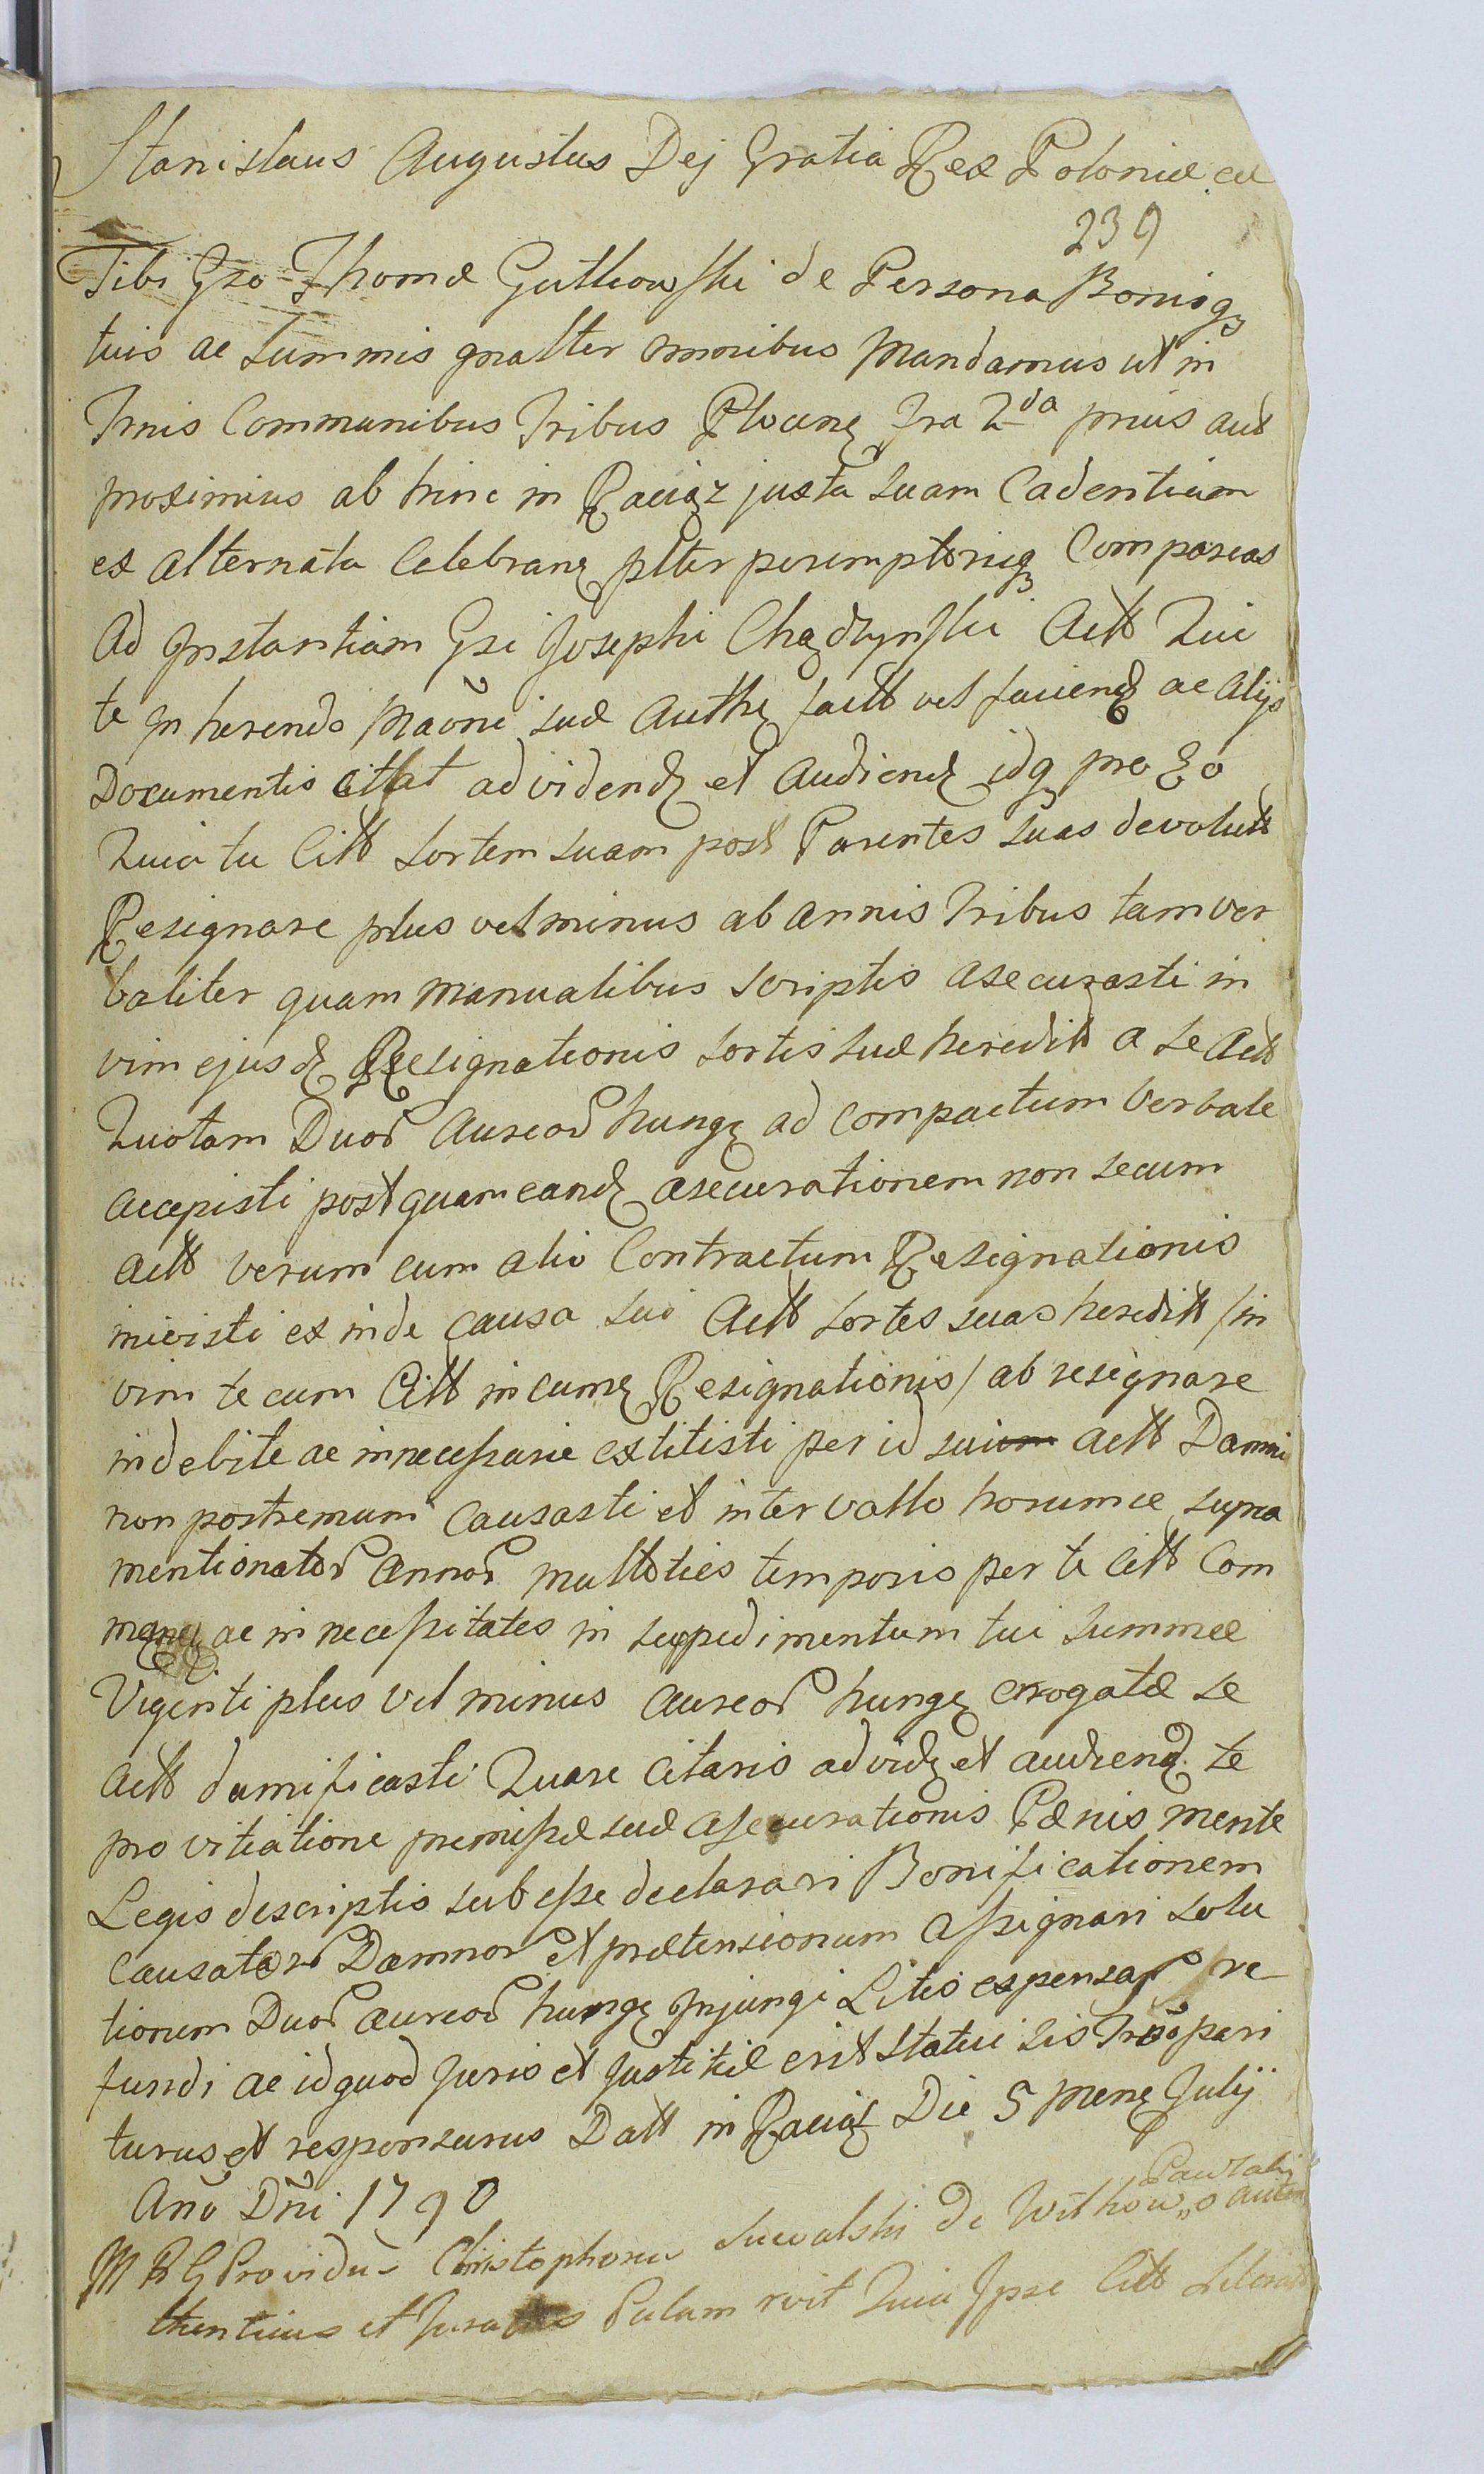 Stanislaus Augustus Dej Gratia Rex Poloniæ etc
239
Tibi Gso Thomæ Gutkowski de Persona Bonisq
tuis ac Summis gnalter omnibus Mandamus ut in
Trnis Communibus Tribus Plocen Fra 2da prius aut
proximius ab hinc in Raciąz juxta suam Cadentiam
ex alternata Celebran plter peremptorieq Compareas
Ad Instantiam Gsi Josephi Chądzynski Actt Qui
te In herendo Maõni suæ Authe factt vel faciend ac alijs
Documentis citat ad videnď et Audiend idq pro eo
Quia tu Citt Sortem suam post Parentes suas devolutt
Resignare plus vel minus ab annis Tribus tam ver
baliter quam Manualibus Scriptis asecurasti in
vim ejusd Resignationis sortis suæ heredit a se Actt
Quotam Duor Aureor hung ad compactum verbale
accepisti post quam eand asecurationem non secum
Actt verum cum alio Contractum Resignationis
inivisti ex inde causa sui Actt sortes suas heredit / in
vim te cum Citt in cume Resignationis / ab resignare
indebite ac innecessarie extitisti per id suium actt Damni
non postremum Causasti et inter vallo horumce supra
mentionator Annor multoties temporis per te citt Com
ac in necessitates in suppedimentum tui Summæ
Viginti plus vel minus aureor hung erogatæ se
Actt damificasti Quare Citaris ad vid et audiend te
pro vitiatione premissæ suæ assecurationis Pænis mente
Legis descriptis sub esse declarari Bonificationem
Causator Damnor et prætensionum Assignari solu
tionem Duor aureor hung Injungi Litis expensas re-
fundi ac id quod Juris et Justitiæ erit Statui sis Trõ pari
turus et responsurus Datt in Raciąz Die 5 Mens Julij
Año Dñi 1790
M R G Providus Christophorus Suwalski de Witkow
thenticus et Juratus Palam rvit Quia Ipse Citt